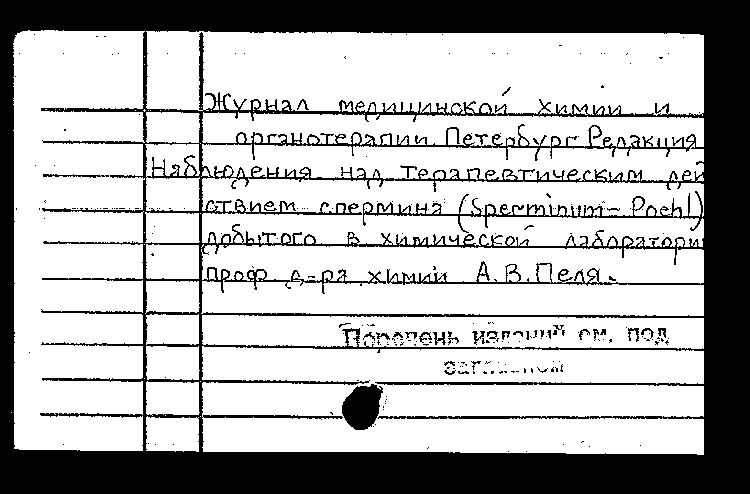 Журнал медицинской химии и
органотерапии. Петербург Редакция
Наблюдения над терапевтическим дей
ствием спермина (Sperminum – Poehl)
добытого в химической лаборатории
проф д-ра химии А.В.Пеля.
Перечень изданий см. под
заглавием